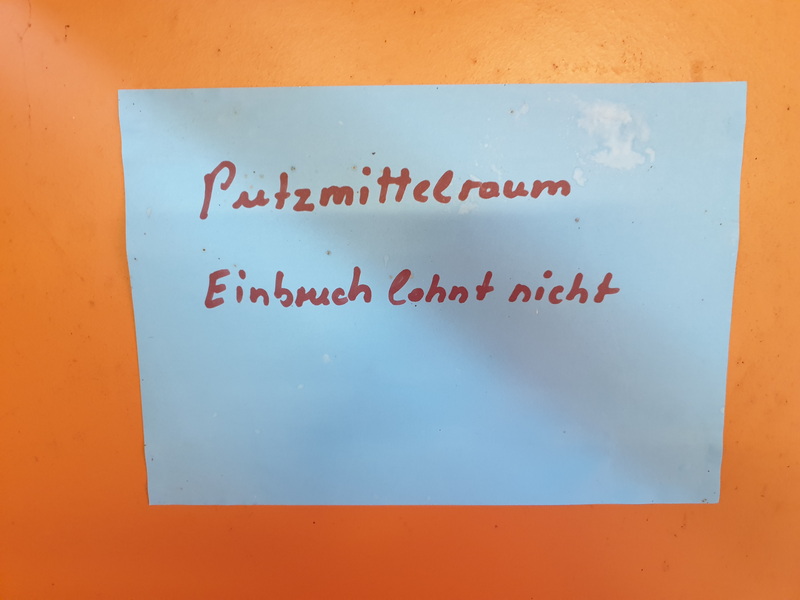 Putzmittelraum
Einbruch lohnt nicht